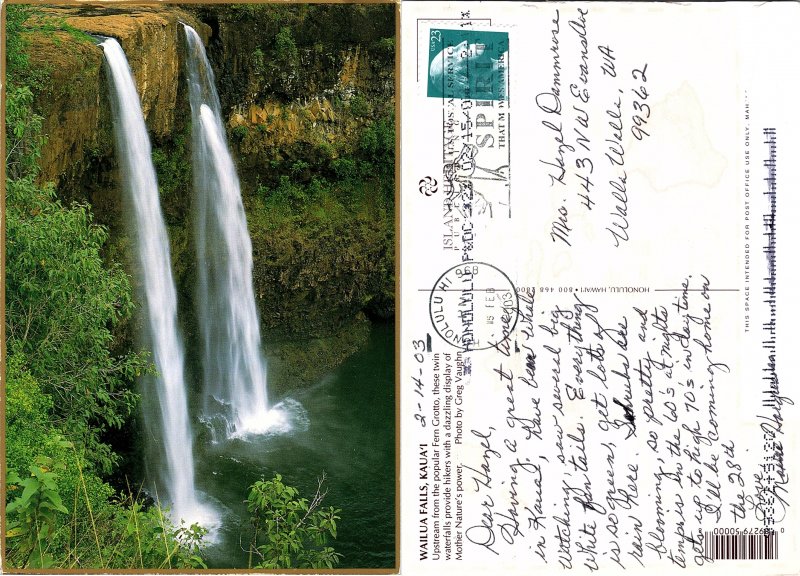 WAILUA FALLS, KAUA'I
Upstream from the popular Fern Grotto, these twin
waterfalls provide hikers with a dazzling display of
Mother Nature's power. Photo by Greg Vaughn
2-14-03
Dear Hazel,
Having a great time
in Kauai, Have been Whale
Watching, saw several big
White tails. Everything
is so green, get lots of
rain here. Schrubs are
blooming, so pretty and
temps in the 60's at nights
get up to high 70's in day time.
I'll be coming home on
the 28th
Love,
USA 23
ISLAND HERITAGE
PUBLISHING
US POSTAL SERVICE
SPIRIT
THAT MOVES AMERICA
HONOLULU HI 968
FEB
HONOLULU P&DC
HONOLULU, HAWAI'I • 800 468 2800
Mrs. Hazel Dammrose
443 N W Evans Ave
Walla Walla, WA
99362
THIS SPACE INTENDED FOR POST OFFICE USE ONLY, MAH
09279-50000